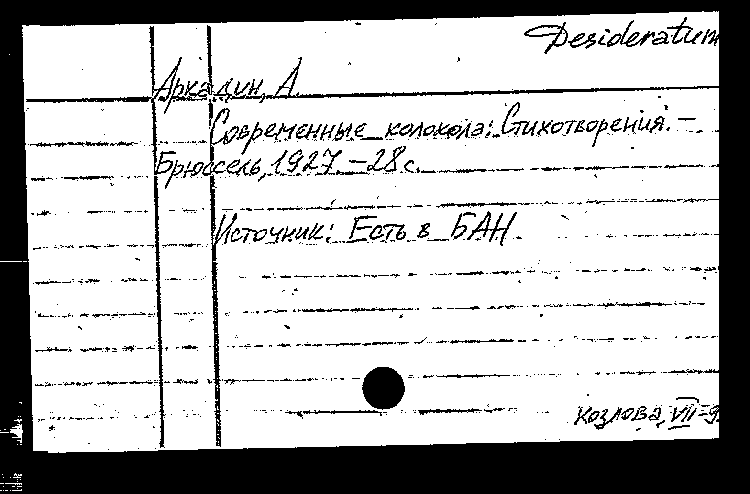 Desideratum
Аркадин, А.
Современные колокола: Стихотворения. –
Брюссель, 1927. – 28 с.
Источник: Есть в БАН.
Козлова, VII-9